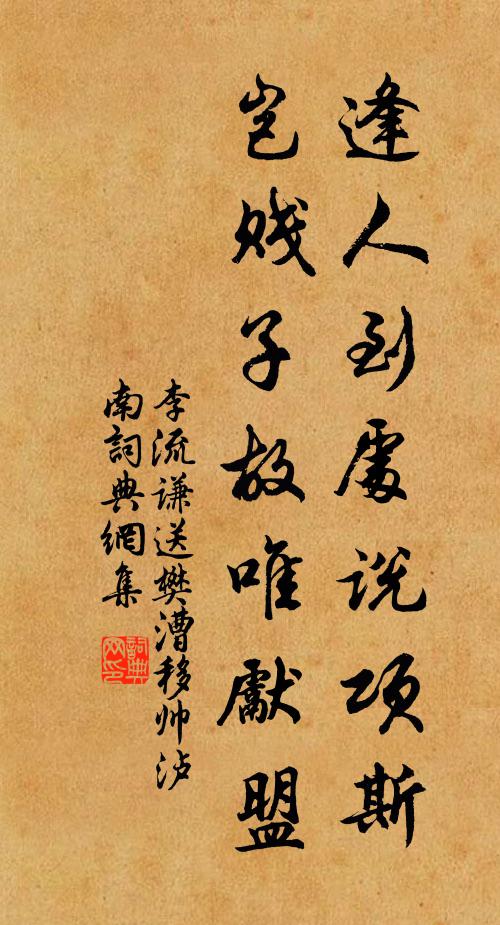 逢人到處说项斯
岂贱子故唯獻盟
李流谦送樊漕移帅泸
南詞典網集
詞典网印